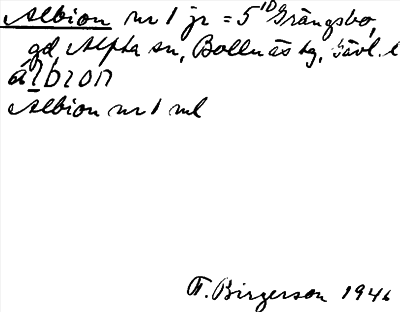 Albion nr 1 jr = 5 1D Grängsbo,
gd, Alpha sn, Bollnäs tg, Gävl. l
Albion nr 1 ml
F. Birgerson 1946